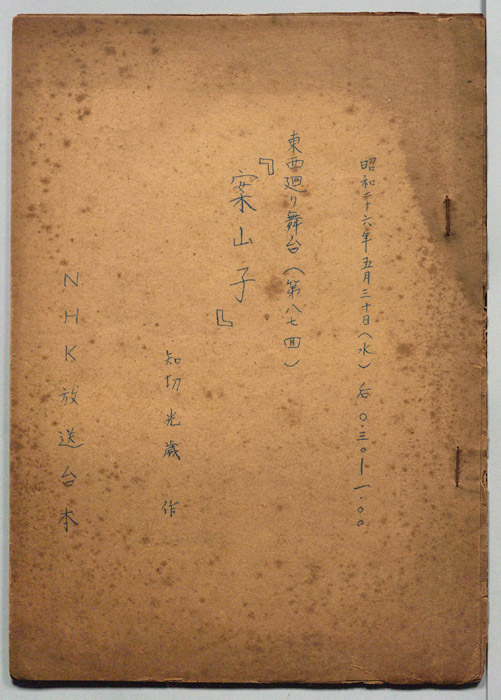 昭和二十六年五月三十日(水) 后 〇.三〇ー一.〇〇
東西廻り舞台(第八七回)
『案山子』
知切光歳 作
NHK放送台本